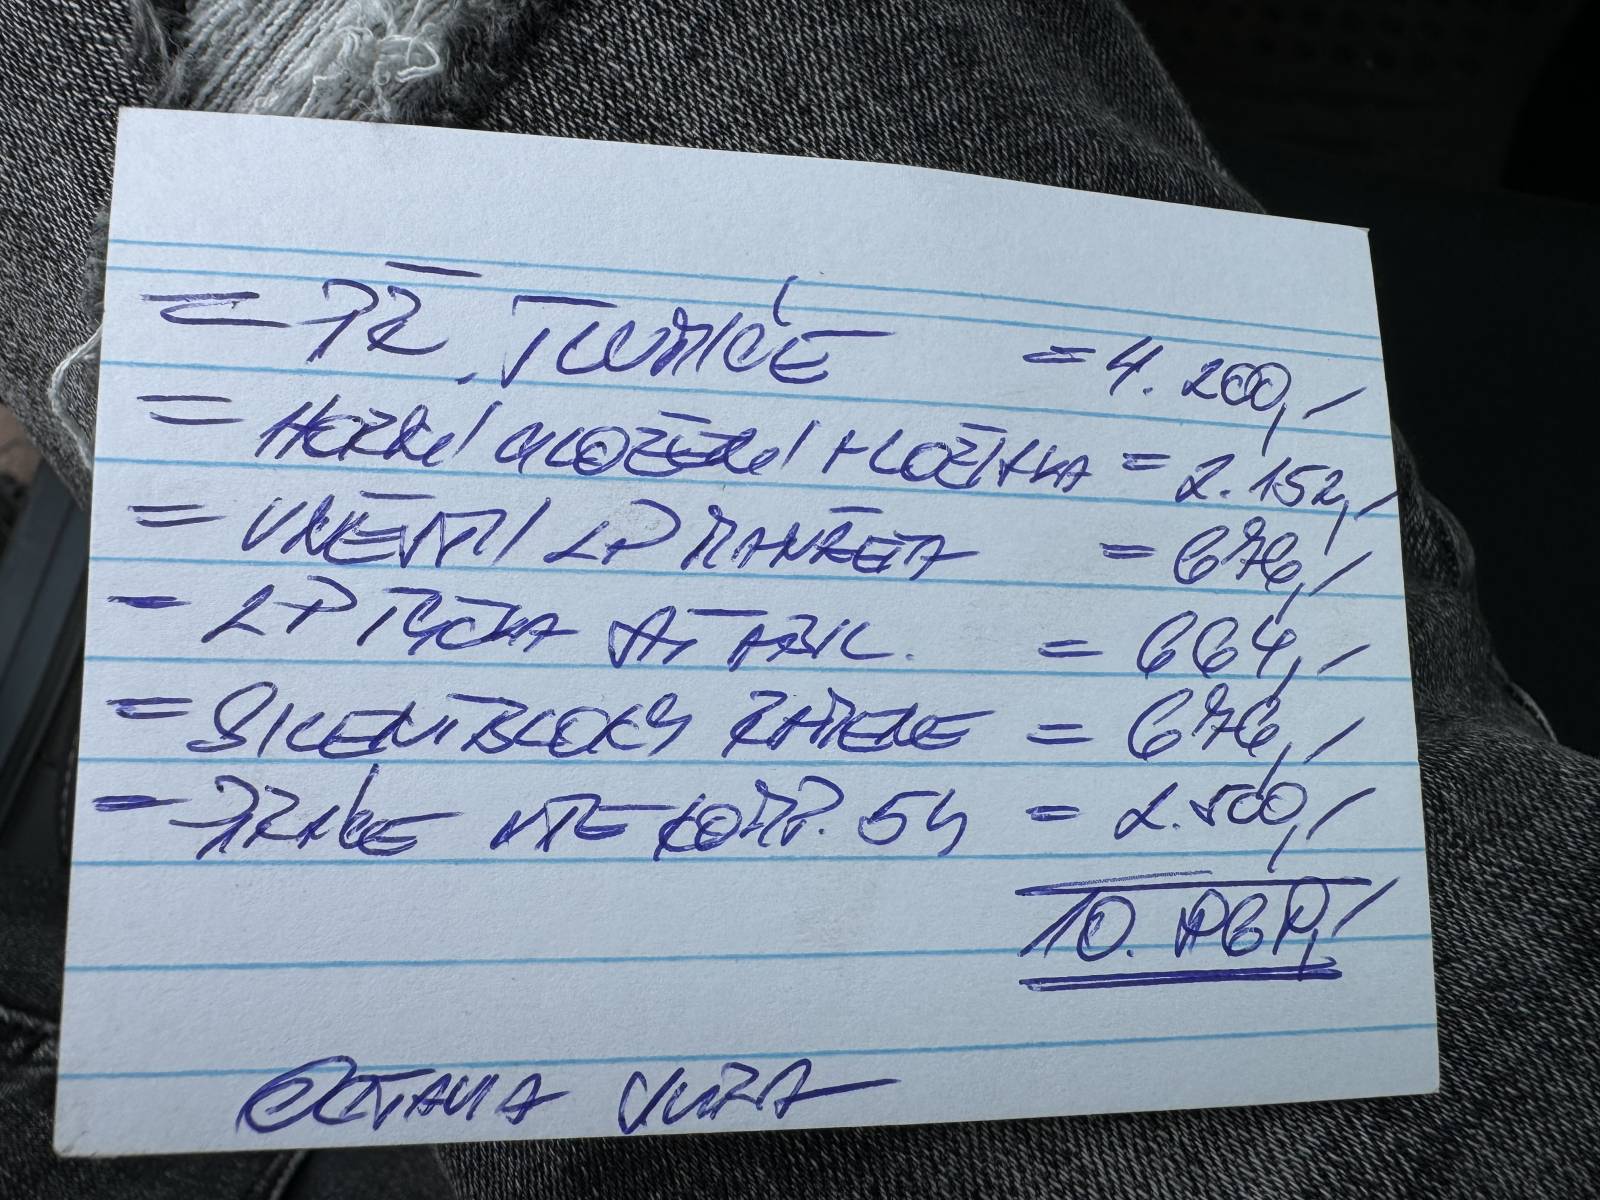 = PŘ. TLUMIČE = 4.200,-
= HORNÍ ULOŽENÍ + LOŽISKA = 2.152,-
= VNĚJŠÍ LP MANŽETA = 676,-
- LP TYČKA STABIL. = 664,-
= SILENTBLOKY RAMENE = 676,-
- PRÁCE VČE KOMP. 5H = 2.500,-
10.868,-
OCTAVIA